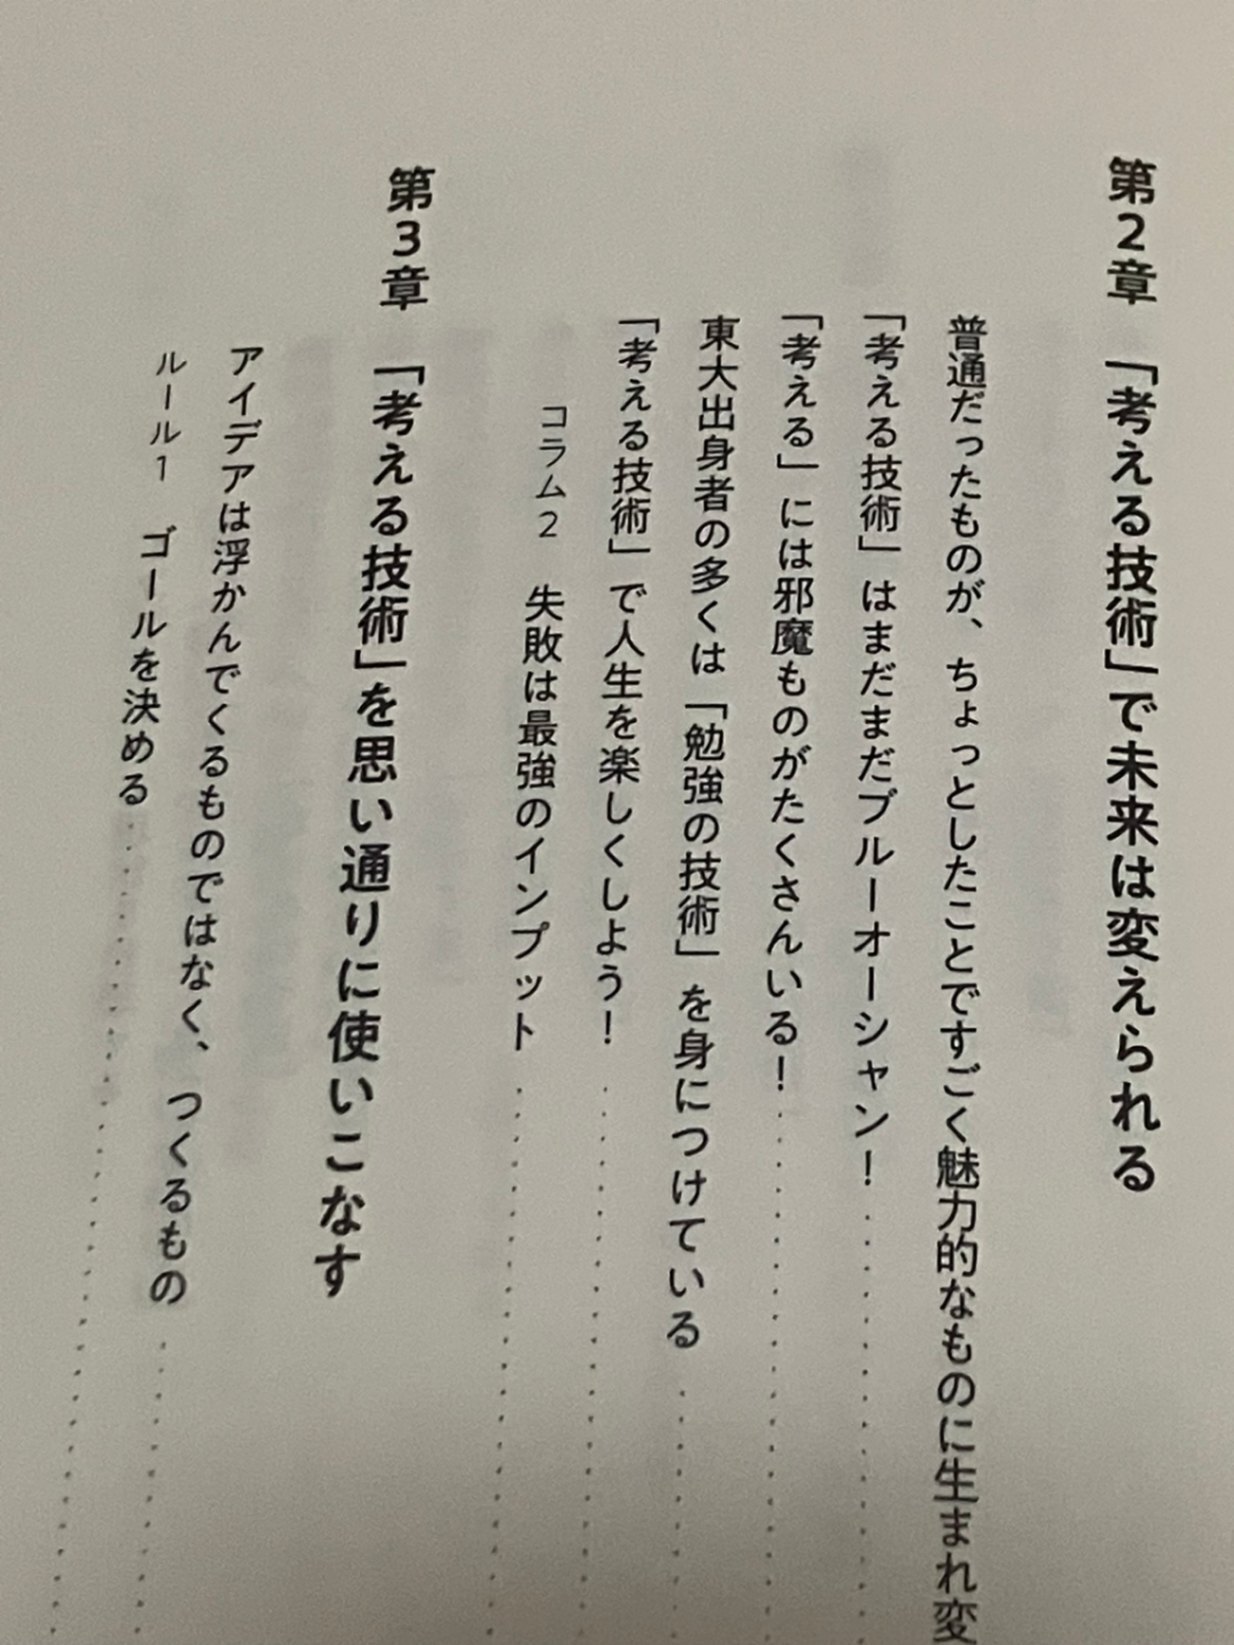 第2章 「考える技術」で未来は変えられる
普通だったものが、ちょっとしたことですごく魅力的なものに生まれ変
「考える技術」はまだまだブルーオーシャン!
「考える」には邪魔ものがたくさんいる!
東大出身者の多くは「勉強の技術」を身につけている
「考える技術」で人生を楽しくしよう!
コラム2 失敗は最強のインプット
第3章 「考える技術」を思い通りに使いこなす
アイデアは浮かんでくるものではなく、つくるもの
ルール1 ゴールを決める